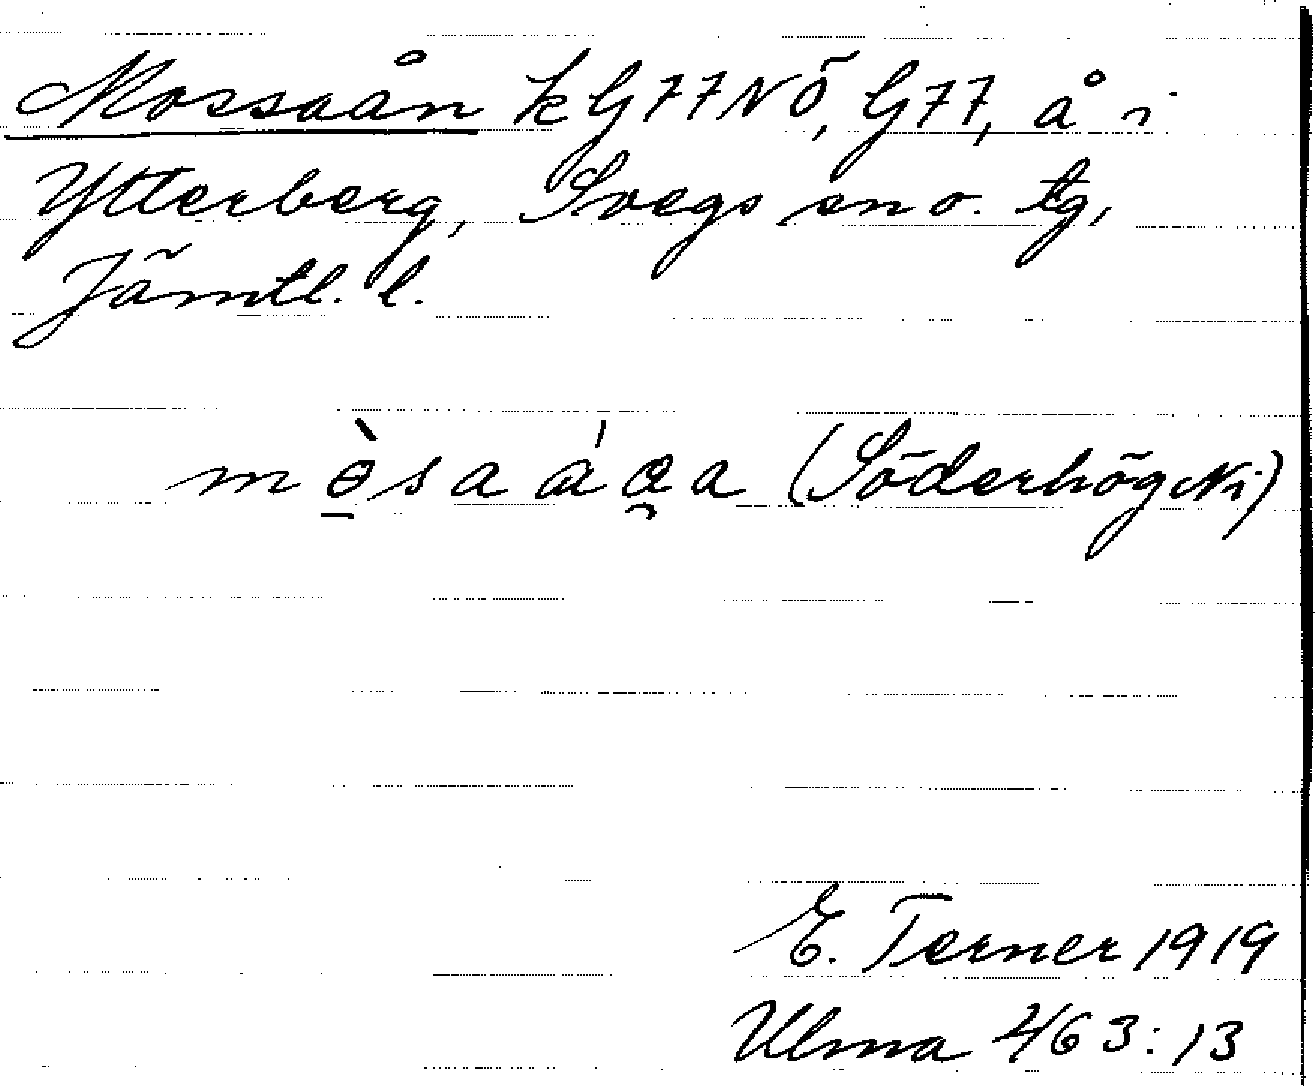 Mossaån k G77NÖ, G77, å i
Ytterberg, Svegs sn o. tg,
Jämtl. l.
(Söderhög Ni)
E. Terner 1919
Ulma 463:13